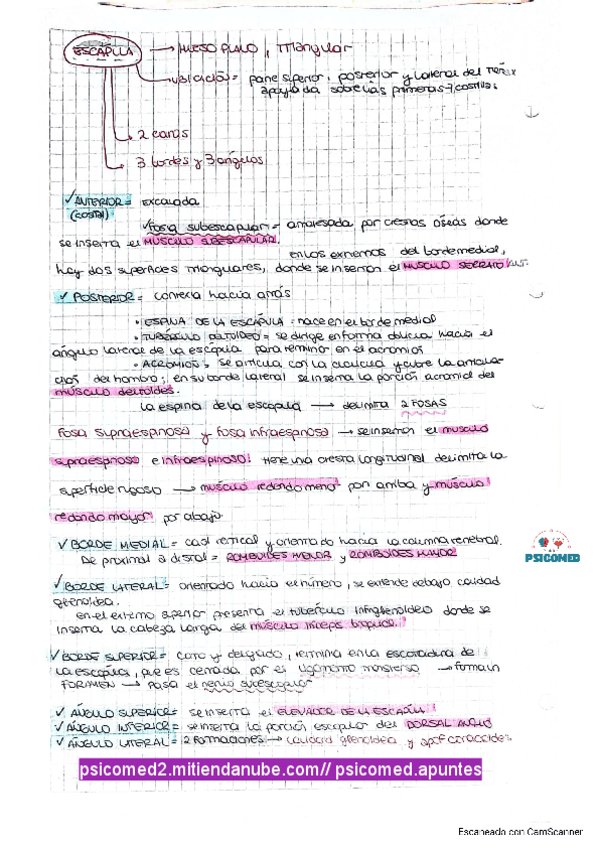 ESCÁPULA → HUESO PLANO, triangular
→ ubicación = parte superior, posterior y lateral del tórax
apoyada sobre las primeras 7 costillas
→ 2 caras
→ 3 bordes y 3 ángulos
✓ ANTERIOR = excavada
(COSTAL)
✓ Fosa subescapular = atravesada por crestas óseas donde
se inserta el MUSCULO SUBESCAPULAR.
en los extremos del borde medial,
hay dos superficies triangulares, donde se insertan el MUSCULO SERRATO
✓ POSTERIOR = convexa hacia atrás
• ESPINA DE LA ESCÁPULA = nace en el borde medial
• TUBÉRCULO DELTOIDEO = se dirige en forma oblicua hacia el
ángulo lateral de la escápula para terminar en el acromios
• ACROMIOS = se articula con la clavícula y cubre la articula-
ción del hombro; en su borde lateral se inserta la porción acromial del
músculo deltoides.
La espina de la escápula → delimita 2 FOSAS
Fosa supraespinosa y fosa infraespinosa → se insertan el musculo
supraespinoso e infraespinoso. tiene una cresta longitudinal delimita la
superficie rugosa → musculo redondo menor por arriba y musculo
redondo mayor por abajo
✓ BORDE MEDIAL = casi vertical y orientado hacia la columna vertebral.
De proximal a distal = ROMBOIDES MENOR y ROMBOIDES MAYOR
✓ BORDE LATERAL = orientado hacia el húmero, se extiende debajo cavidad
glenoidea.
en el extremo superior presenta el tubérculo infraglenoideo donde se
inserta la cabeza larga del musculo tríceps braquial.
✓ BORDE SUPERIOR = corto y delgado, termina en la escotadura de
la escápula, que es cerrada por el ligamento transverso → forma un
FORAMEN → pasa el nervio supraescapular
✓ ÁNGULO SUPERIOR = se inserta el ELEVADOR DE LA ESCÁPULA
✓ ÁNGULO INFERIOR = se inserta la porción escapular del DORSAL ANCHO
✓ ÁNGULO LATERAL = 2 formaciones → cavidad glenoidea y apof coracoides.
PSICOMED
psicomed2.mitiendanube.com// psicomed.apuntes
Escaneado con CamScanner